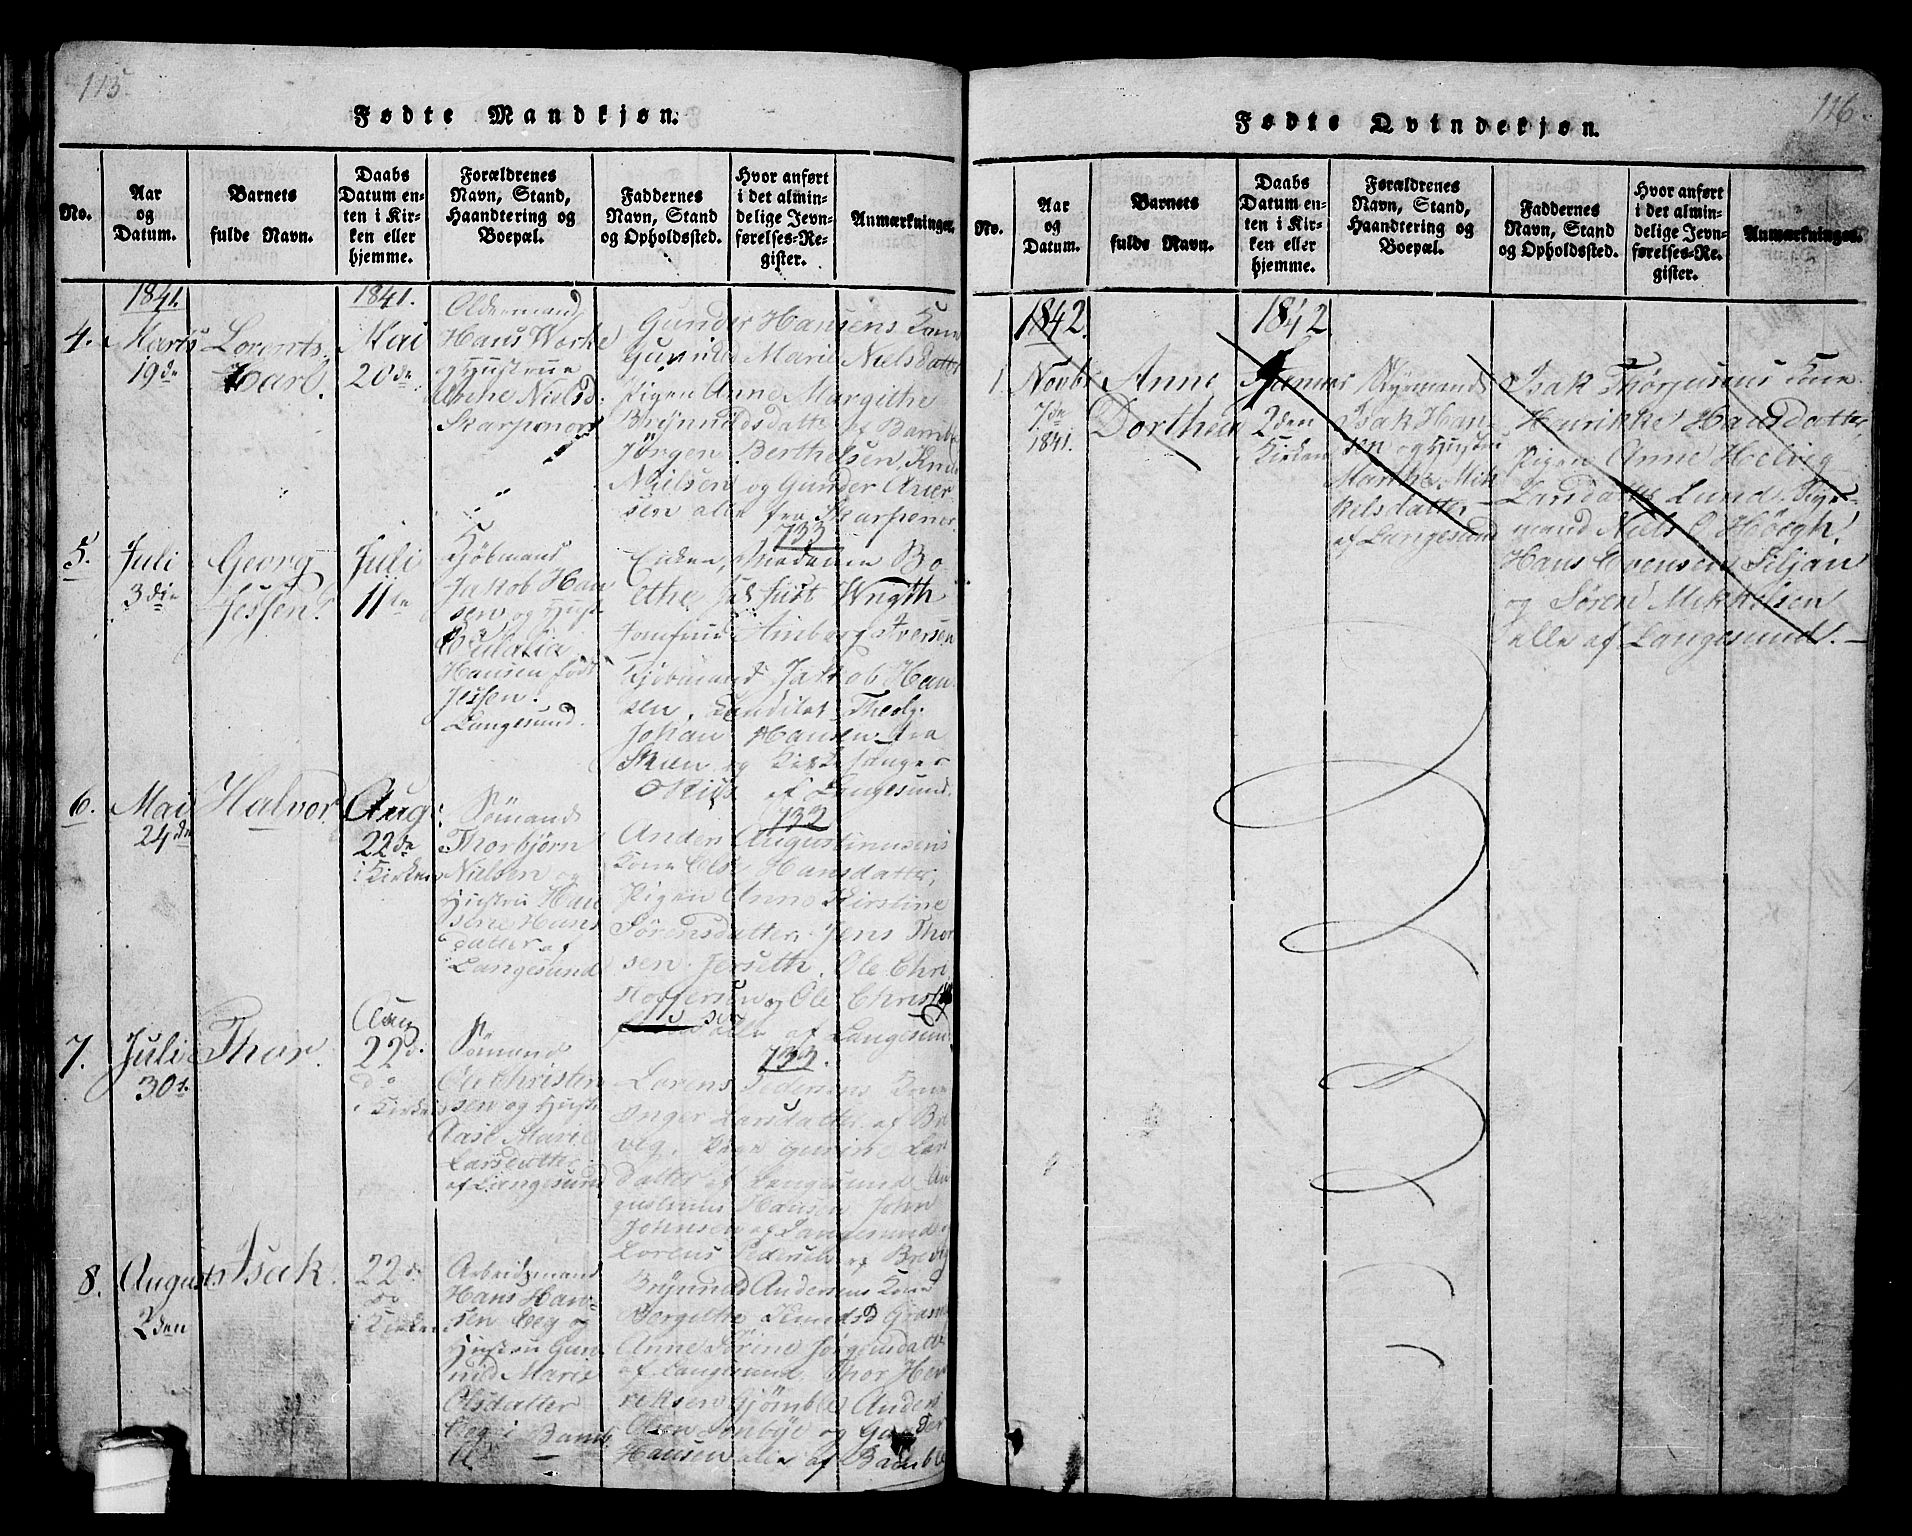 115
Fødte Mandkjøn.
No.
Aar
og
Datum.
Barnets
fulde Navn.
Daabs
Datum en-
ten i Kir-
ken eller
hjemme.
Forældrenes
Navn, Stand,
Haandtering og
Boepæl.
Faddernes
Navn, Stand
og Opholdssted.
Hvor anført
i det almin-
delige Jevn-
førelses-Re-
gister.
Anmærkninger.
1841.
4. Marts
19de
Lorents
Carl.
1841.
Mai
20de
Oldermand
Hans Worke
og Hustrue
Nielsd.
Skarpenord
Gunder Hansens Kone
Gunild Marie Nielsdatter
Pigen Anne Margithe
Brynnildsdatter af Bamble
Jörgen Berthelsen, Knud
Nielsen og Gunder Aner
sen alle fra Skarpenor
733
5. Juli
3die
Georg
Jessen.
Juli
11te
Kjöbmand
Jakob Han
sen og Hust
Hansen födt
Jessen.
Langesund.
Enken, Madame Bo
ethe Wrigth
Jomfrue Amberg Iversen
Kjøbmand Jakob Han
sen, Kandidat Theolg.
Johan Hansen fra
Skien og Kirkesanger
af Langesund.
6. Mai
24de
Halvor
Aug:
22de
i Kirken
Sömand
Thorbjørn
Nielsen og
Hustru Han
sine Hans
datter af
Langesund
732
Anders Augustinusens
Kone Else Hansdatter,
Pigen Anne Kirstine
Sörensdatter, Jens Thor
sen Jerseth, Ole Chri
stoffersen og Ole Christ
sen alle af Langesund.
7. Juli
30te
Thor.
Aug
22de
do
i Kirken
Sömand
Ole Christen
sen og Hustr
Aase Marie
Larsdatter
af Langesund
733.
Lorens Pedersens Kone
Inger Larsdatter af Bre
vig, Pigen Gurine Lars
datter af Langesund Au
gustinus Hansen John
Johnsen af Langesund
Lorens Pedersen af Brevig
8. August
2den
Isak.
22de
do
i Kirken
Arbeidsmand
Hans Han-
sen Eeg og
Hustru Gun
nild Marie
Olsdatter
Eeg i Bamb
le
Brynild Andersens Kone
Bergithe Knudsd
Anne Sörine Jörgensdatter
af Langesund. Thor Hen
riksen Gjömble Anders
Olsen Tonbye og Gunder
Hansen alle af Bamble
116.
Fødte Qvindekjøn.
No.
Aar
og
Datum.
Barnets
fulde Navn.
Daabs
Datum en-
ten i Kir-
ken eller
hjemme.
Forældrenes
Navn, Stand,
Haandtering og
Boepæl.
Faddernes
Navn, Stand
og Opholdssted.
Hvor anført
i det almin-
delige Jevn-
førelses-Re-
gister.
Anmærkninger.
1842.
1. Novbr
7de
1841.
Anne
Dorthea
1842
2den
i Kirken
Styrmand
Isak Han
sen og Hustru
Marthe Mik
kelsdatter
af Langesund
Isak Thorjusens Kone
Henrikke Hansdatter,
Pigen Anne Helvig
Larsdatter Lund, Styr-
mand Niels O Höegh,
Hans Evensen Siljan
og Sören Mikkelsen
alle af Langesund.